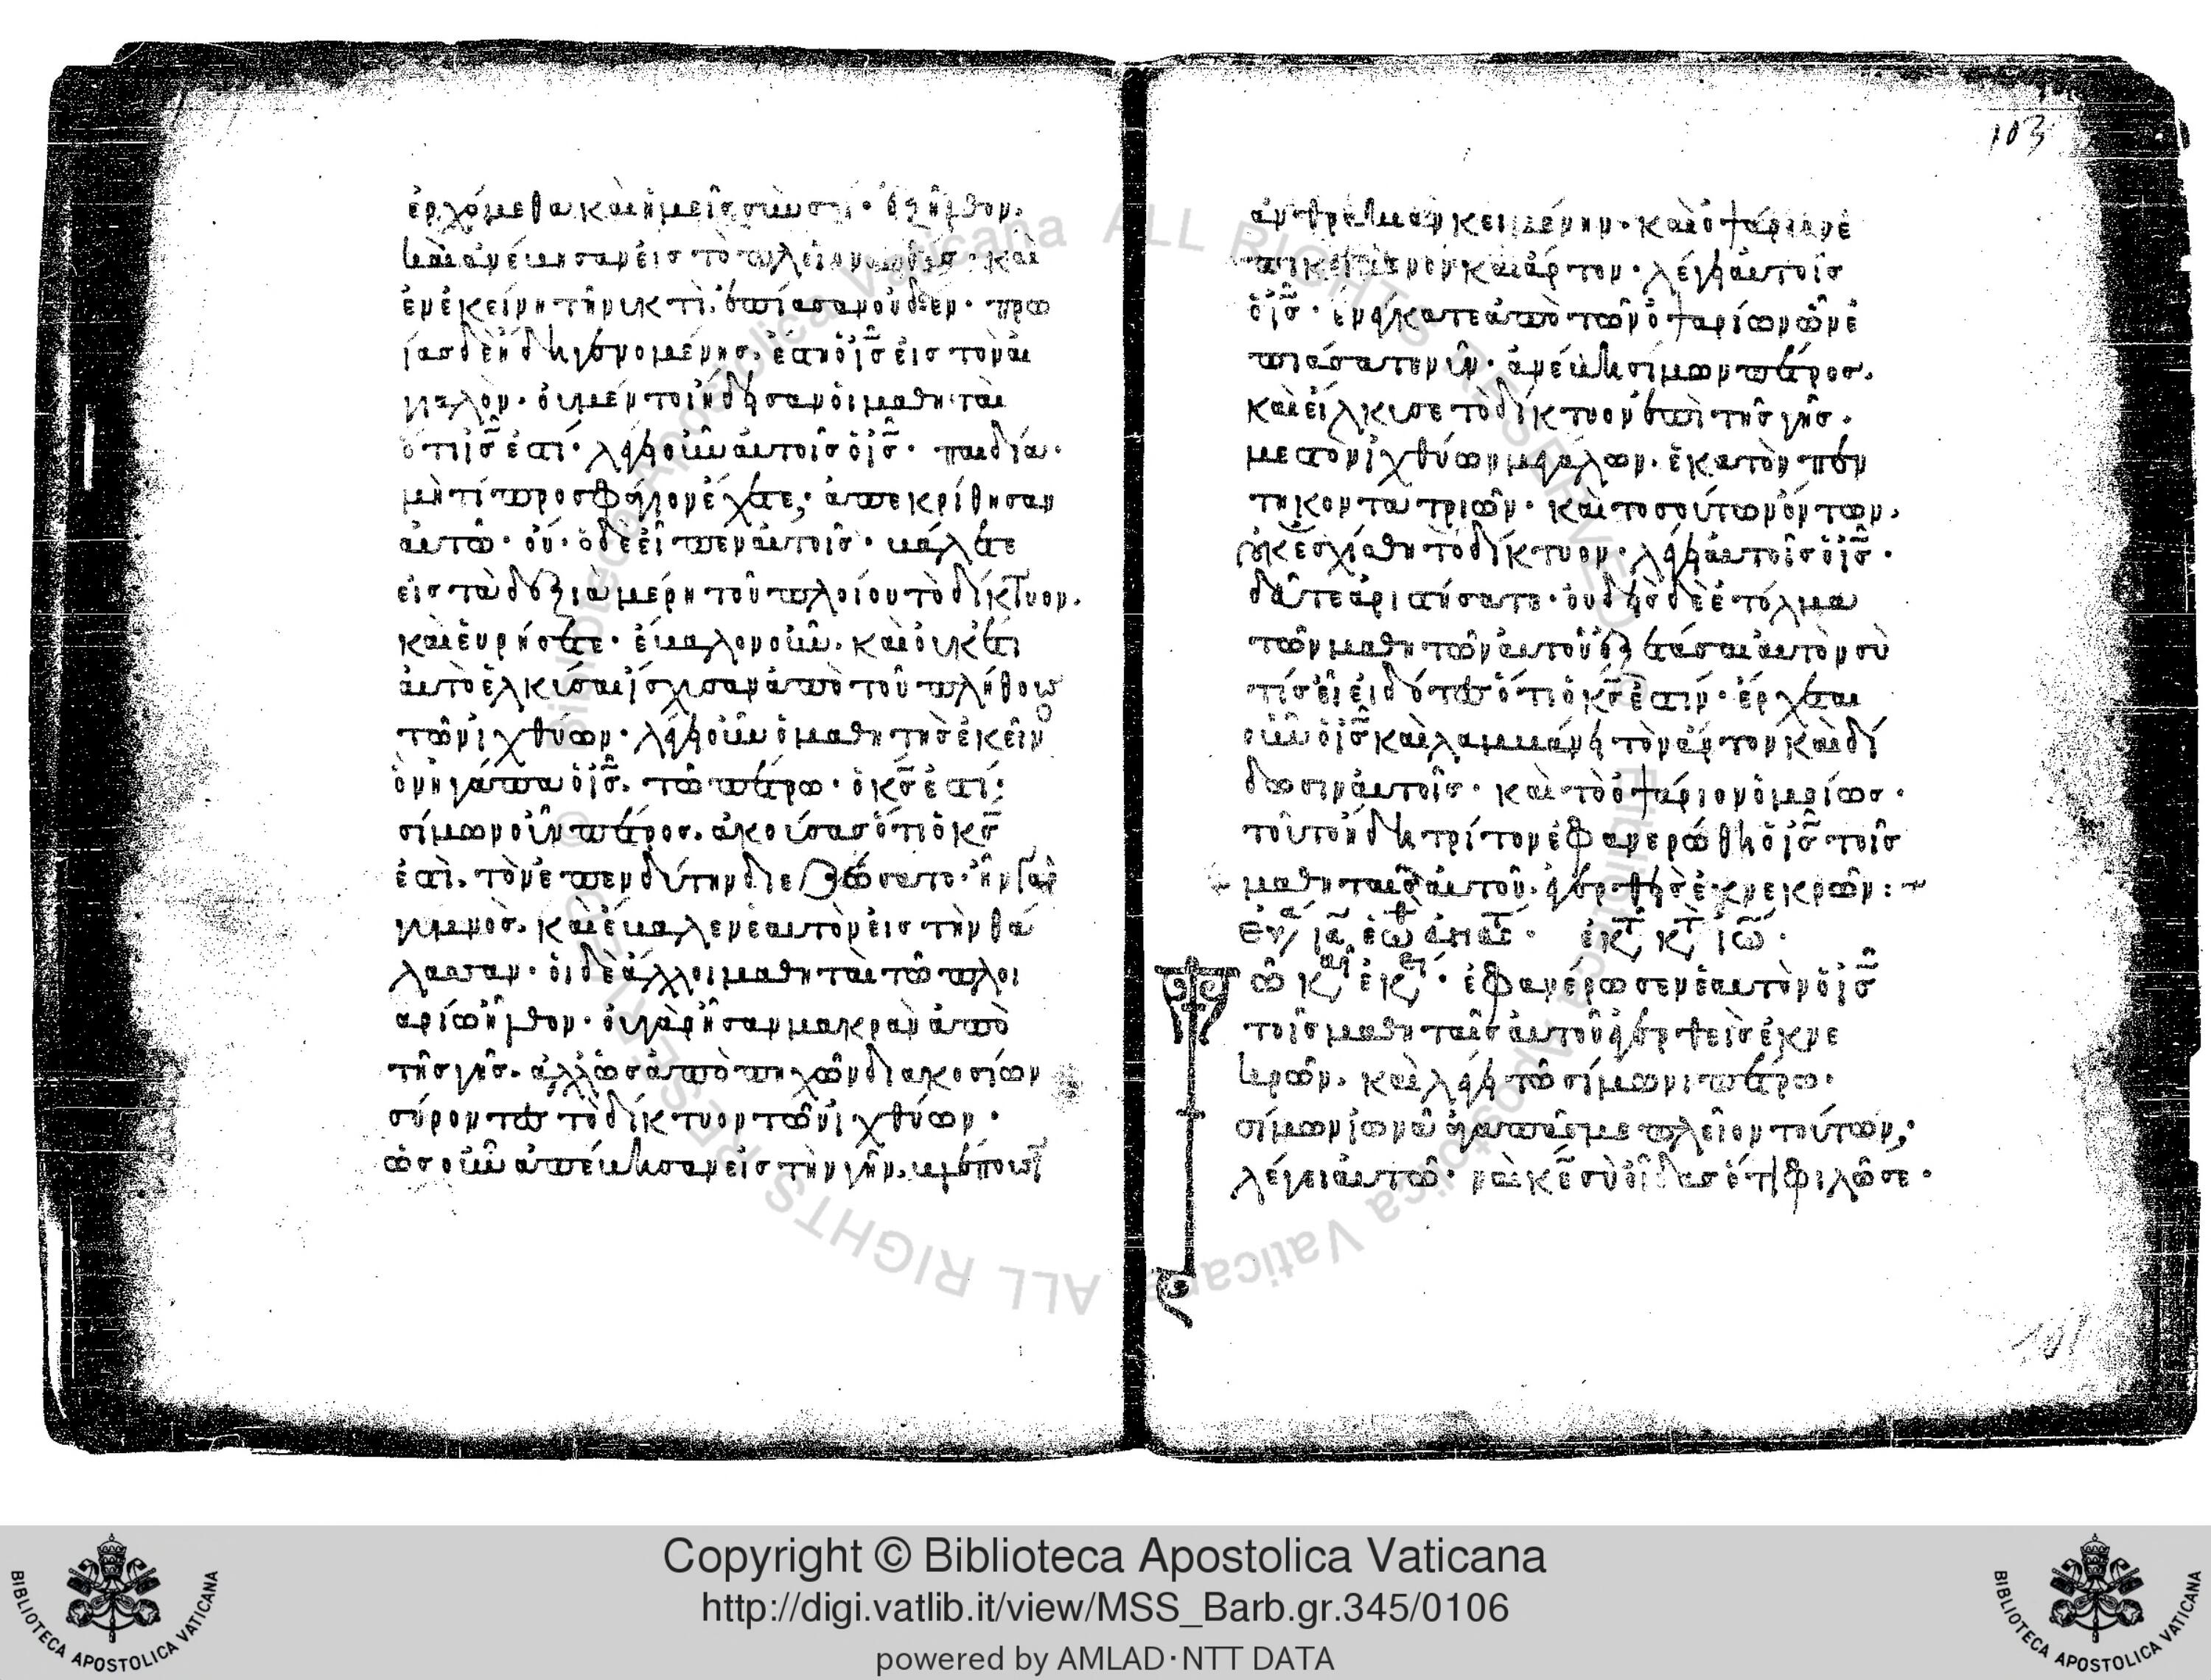 ἐρχόμεθα καὶ ἡμεῖς σὺν σοί· ἐξῆλθον
καὶ ἀνέβησαν εἰς τὸ πλοῖον εὐθύς· καὶ
ἐν ἐκείνη τῆ νυκτὶ ἐπίασαν οὐδεν· πρω
ίας δὲ ἤδη γενομένης. ἔστη ὁ ἰς εἰς τὸν αἰ
γιαλὸν· οὐ μέντοι ἤδεισαν οἱ μαθηταὶ
ὅτι ἰς ἐστί· λέγει οὖν αὐτοῖς ὁ ἰς· παιδία·
μήτι προσφάγιον ἔχετε; ἀπεκρίθησαν
αὐτῶ· οὔ· ὁ δὲ εἶπεν αὐτοῖς· βάλετε
εἰς τὰ δεξιὰ μέρη τοῦ πλοίου τὸ δίκτυον.
καὶ εὑρήσετε· ἔβαλον οὖν. καὶ οὐκέτι
αὐτὸ ἑλκύσαι ἴσχυσαν ἀπὸ τοῦ πλήθους
τῶν ἰχθύων· λέγει οὖν ὁ μαθητὴς ἐκεῖνο
ὃν ἠγάπα ὁ ἰς. τῶ πέτρω· ὁ κς ἐστί·
σίμων οὖν πέτρος. ἀκούσας ὅτι ὁ κς
ἐστὶ. τὸν ἐπενδύτην διεζώσατο· ἦν γὰρ
γυμνὸς. καὶ ἔβαλεν ἑαυτὸν εἰς τὴν θά
λασσαν· οἱ δὲ ἄλλοι μαθηταὶ τῶ πλοι
αρίω ἦλθον· οὐ γὰρ ἦσαν μακρὰν ἀπὸ
τῆς γῆς. ἀλλ' ὡς ἀπὸ πηχῶν διακοσίων
σύροντες τὸ δίκτυον τῶν ἰχθύων·
ὡς οὖν ἀπέβησαν εἰς τὴν γῆν. βλέπουσι
103
ἀνθρακιὰν κειμένην· καὶ ὀψάριον ἐ
πικείμενον καὶ ἄρτον· λέγει αὐτοῖς
ὁ ἰς· ἐνέγκατε ἀπὸ τῶν ὀψαρίων ὧν ἐ
πιάσατε νῦν· ἀνέβη σίμων πέτρος.
καὶ εἵλκυσε τὸ δίκτυον ἐπὶ τῆς γῆς.
μεστὸν ἰχθύων μεγάλων. ἑκατὸν πεν
τηκοντατριῶν· καὶ τοσούτων ὄντων.
οὐκ ἐσχίσθη τὸ δίκτυον· λέγει αὐτοῖς ὁ ἰς·
δεῦτε ἀριστήσατε· οὐδεὶς δὲ ἐτόλμα
τῶν μαθητῶν αὐτοῦ ἐξετάσαι αὐτὸν σὺ
τίς εἶ εἰδότες ὅτι ὁ κς ἐστίν· ἔρχεται
οὖν ὁ ἰς καὶ λαμβάνει τὸν ἄρτον καὶ δί
δωσιν αὐτοῖς· καὶ τὸ ὀψάριον ὁμοίως·
τοῦτο ἤδη τρίτον ἐφανερώθη ὁ ἰς τοῖς
μαθηταῖς αὐτοῦ. ἐγερθεὶς ἐκ νεκρῶν:
τῶ κ ἐκ· ἐφανέρωσεν ἑαυτὸν ὁ ἰς
τοῖς μαθηταῖς αὐτοῦ ἐγερθεὶς ἐκ νε
κρῶν. καὶ λέγει τῶ σίμωνι πέτρω·
σίμων ἰωνᾶ ἀγαπᾶς με πλεῖον τούτων;
λέγει αὐτῶ· ναὶ κε σὺ οἶδας ὅτι φιλῶ σε·
Copyright © Biblioteca Apostolica Vaticana
http://digi.vatlib.it/view/MSS_Barb.gr.345/0106
powered by AMLAD·NTT DATA
BIBLIOTECA APOSTOLICA VATICANA
BIBLIOTECA APOSTOLICA VATICANA